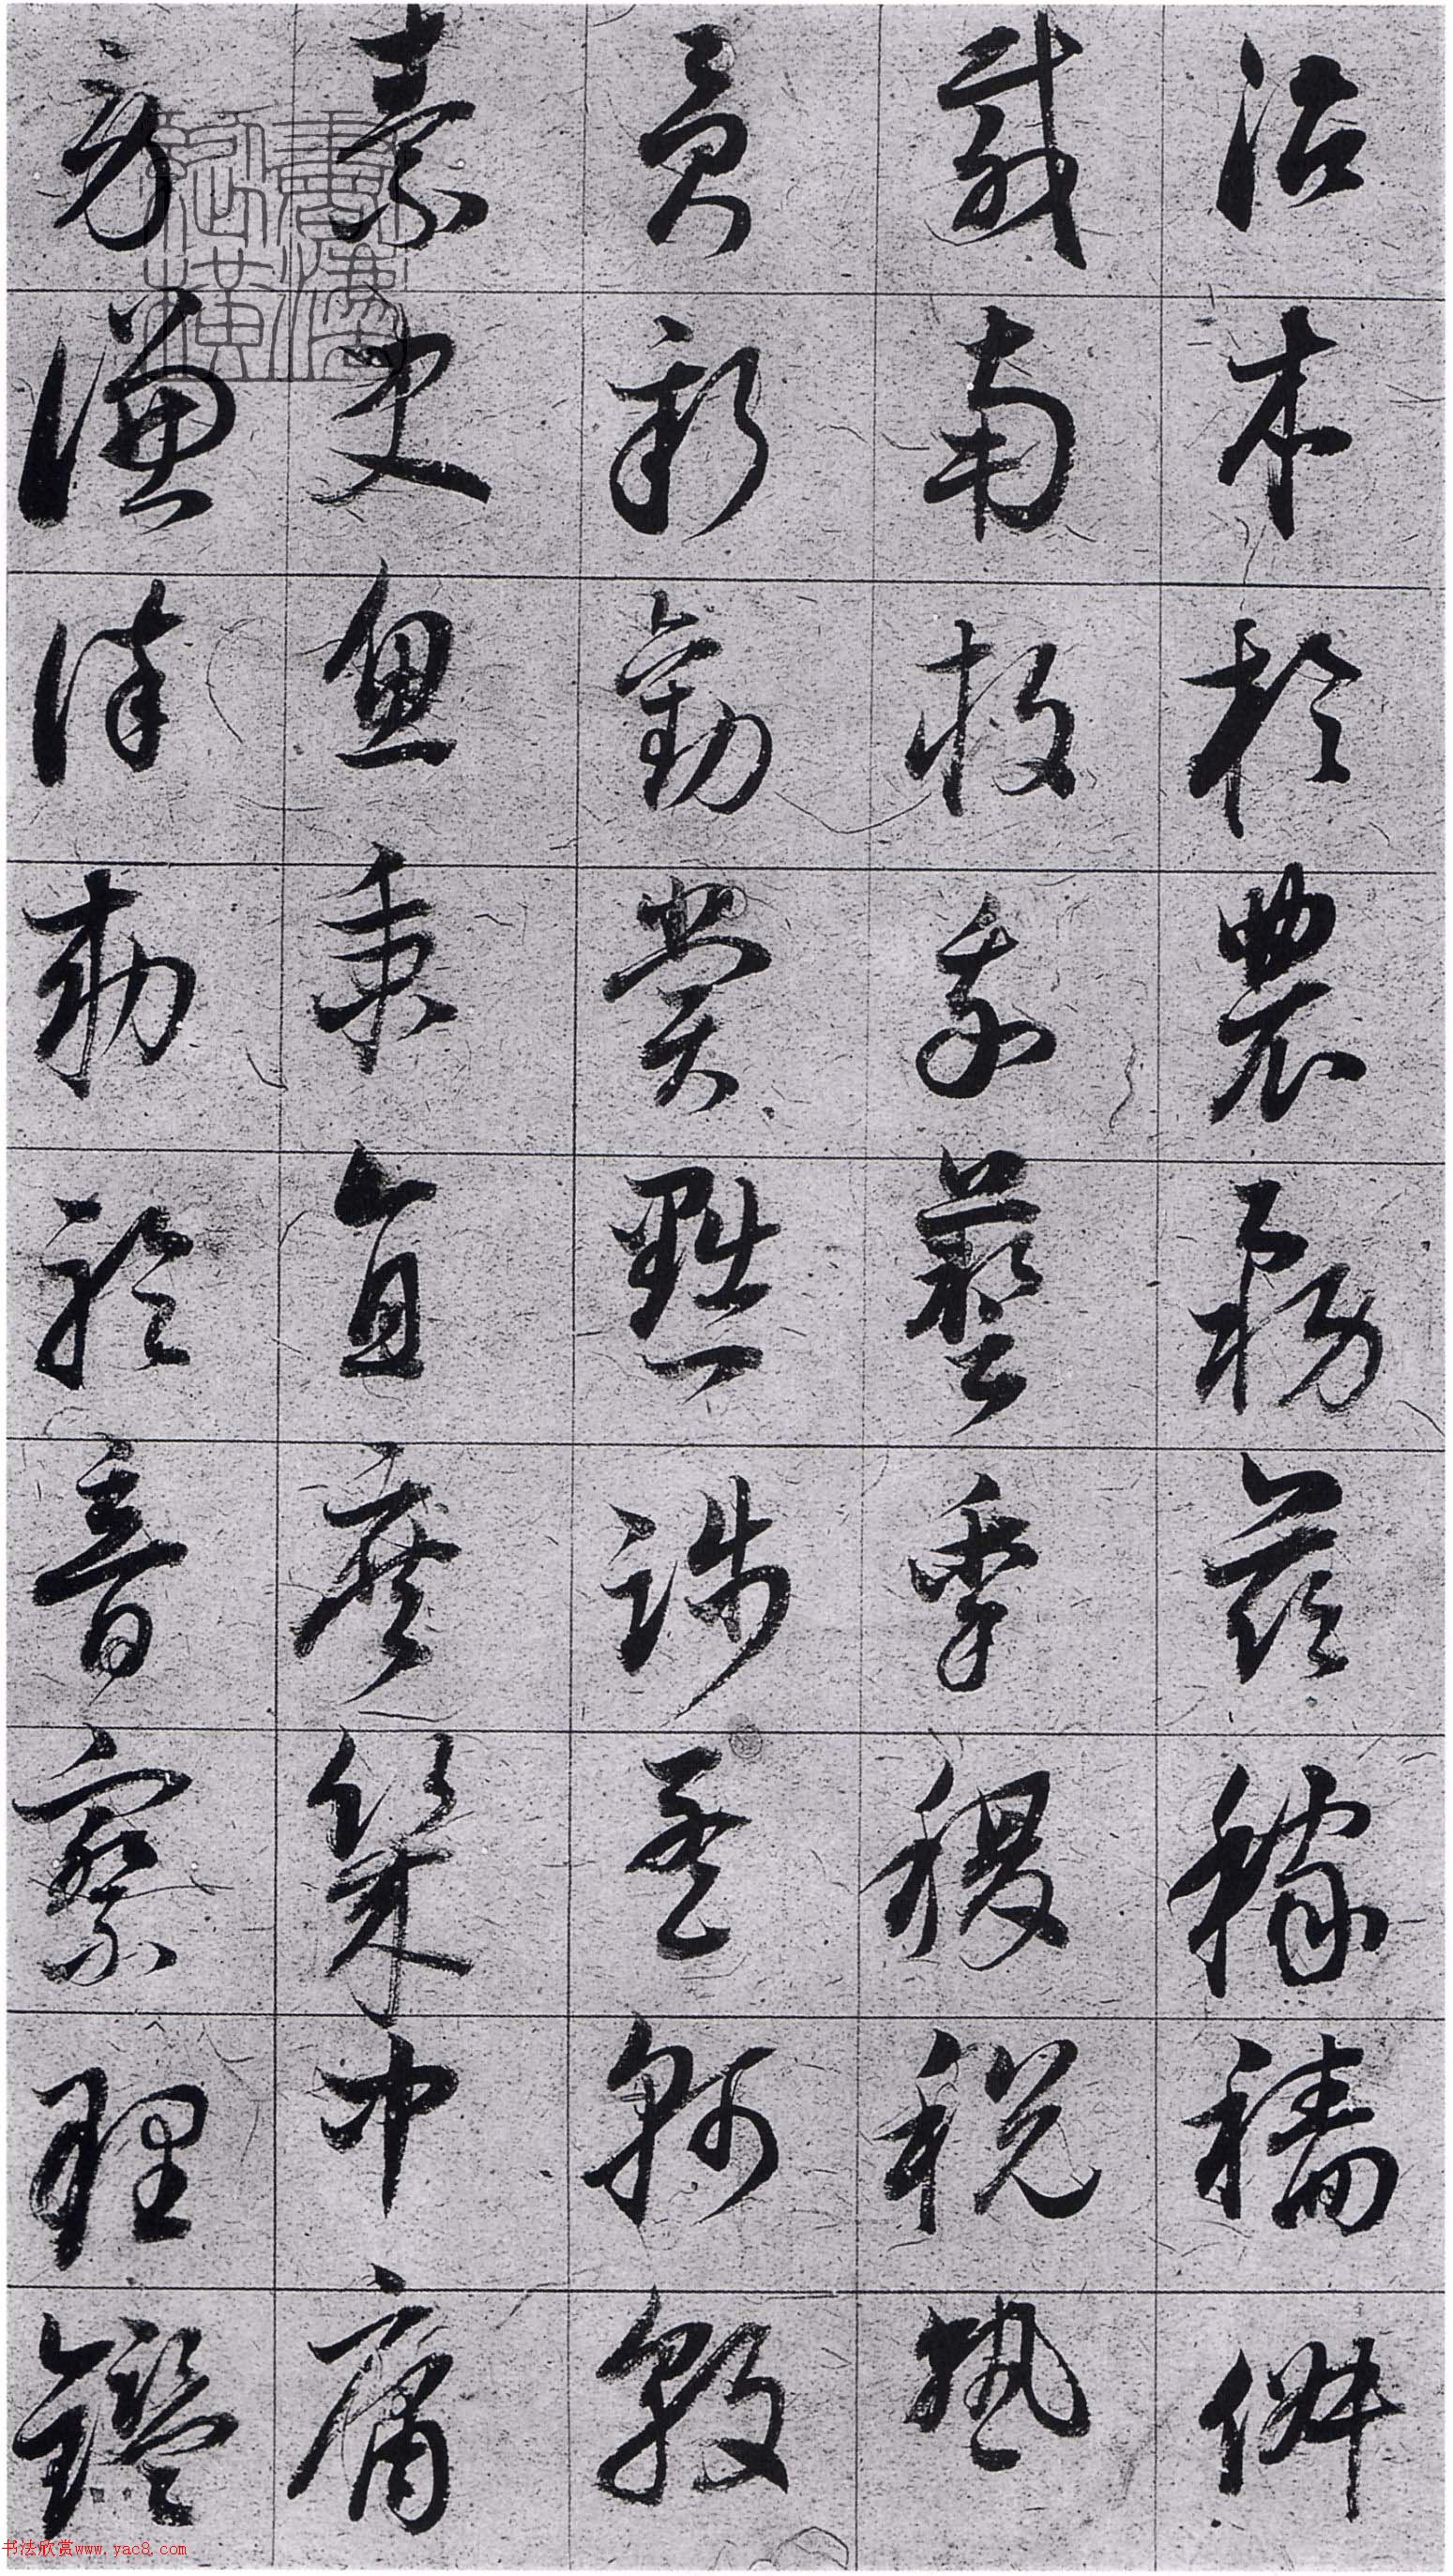 治本於農務茲稼穡俶
載南畝我藝黍稷稅熟
貢新勸賞黜陟孟軻敦
素史魚秉直庶幾中庸
勞謙謹敕聆音察理鑑
書法縱橫
书法欣赏www.yac8.com